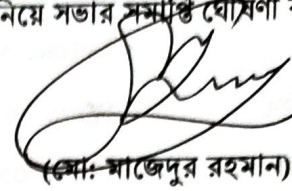 নিয়ে সভার সমাপ্তি ঘোষণা
(মো: মাজেদুর রহমান)